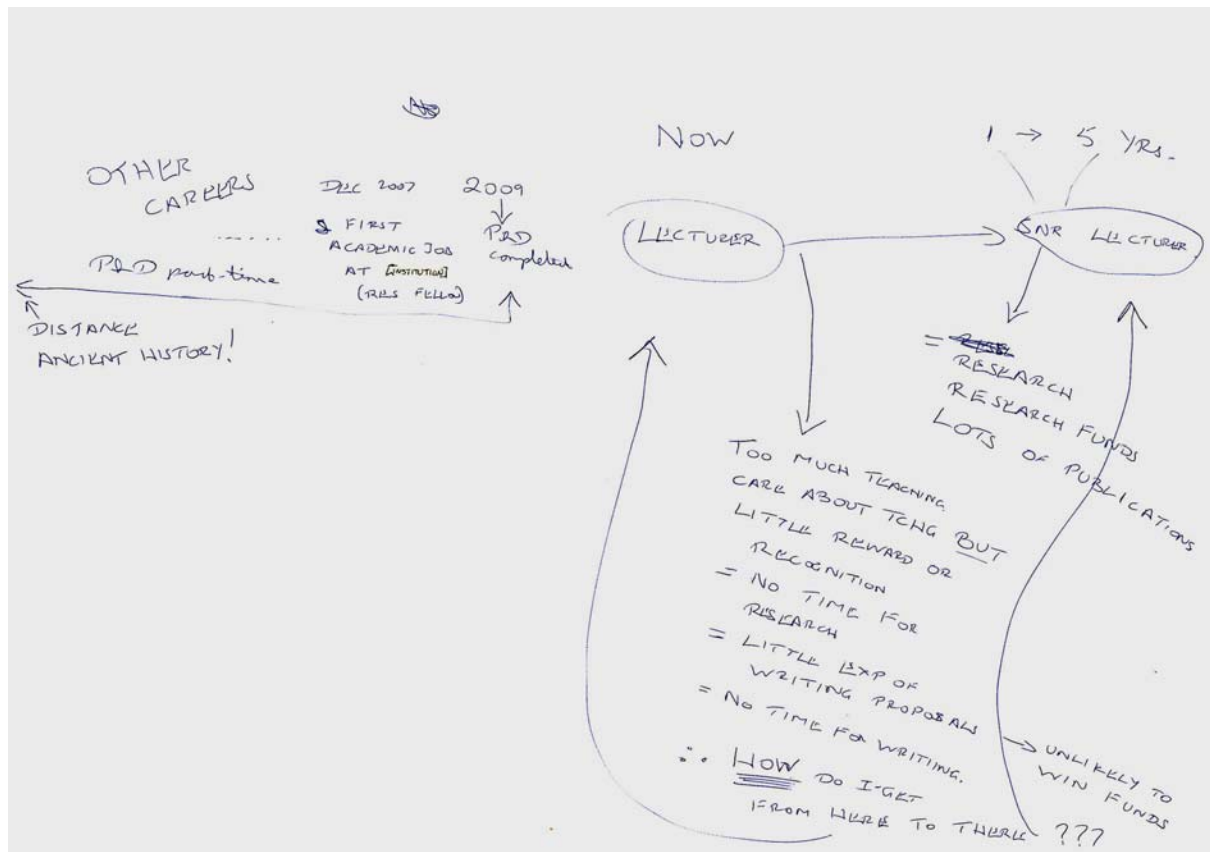 OTHER
CAREERS
......
PhD part-time
DISTANCE
ANCIENT HISTORY!
DEC 2007
FIRST
ACADEMIC JOB
AT [INSTITUTION]
(RES FELLOW)
2009
PhD
completed
NOW
LECTURER
1 → 5 YRS.
SNR LECTURER
=
RESEARCH
RESEARCH FUNDS
LOTS OF PUBLICATIONS
TOO MUCH TEACHING
CARE ABOUT TCHG BUT
LITTLE REWARD OR
RECOGNITION
= NO TIME FOR
RESEARCH
= LITTLE EXP OF
WRITING PROPOSALS
→ UNLIKELY TO
WIN FUNDS
= NO TIME FOR WRITING.
∴ HOW DO I GET
FROM HERE TO THERE ???